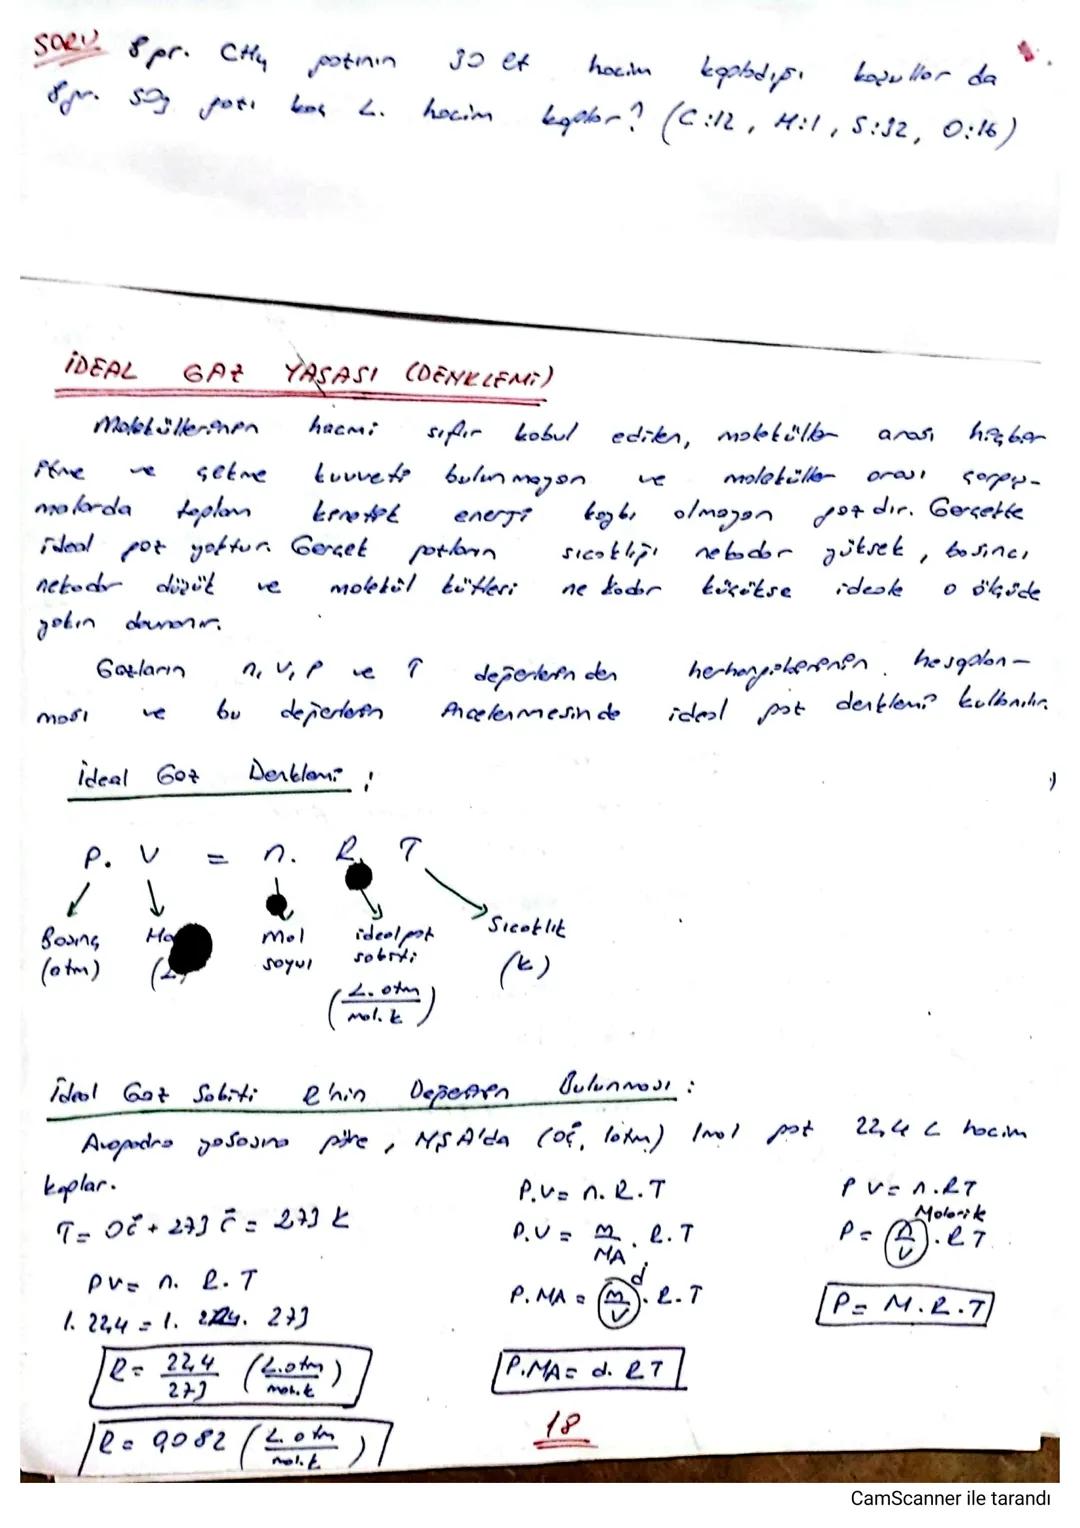 SORU 8 gr. CH4 gazının 30 lt hacim kapladığı koşullar da
8 gr. SO3 gazı kaç L. hacim kaplar? (C:12, H:1, S:32, O:16)
İDEAL GAZ YASASI (DENKLEMİ)
Moleküllerinin hacmi sıfır kabul edilen, moleküller arası hiçbir
itme ve çekme kuvveti bulunmayan ve moleküller arası çarpış-
malarda toplam kinetik enerji kaybı olmayan gazdır. Gerçekte
ideal gaz yoktur. Gerçek gazların sıcaklığı nekadar yüksek, basıncı
nekadar düşük ve molekül kütleri ne kadar küçükse ideale o ölçüde
yakın davranır.
Gazların n, V, P ve T değerlerinden herhangibirinin hesaplan-
ması ve bu değerlerin incelenmesinde ideal gaz denklemi kullanılır.
İdeal Gaz Denklemi :
P. V = n. R. T
Basınç Mol ideal gaz Sıcaklık
(atm) sayısı sabiti (K)
(L. atm / mol. K)
İdeal Gaz Sabiti R'nin Değerinin Bulunması :
Avogadro yasasına göre, NŞA'da (0°C, 1atm) 1mol gaz 22,4 L hacim
kaplar.
T = 0°C + 273°C = 273 K
PV = n. R. T
1. 22,4 = 1. 273
R = 22,4 / 273 (L.atm / mol.K)
R = 0,082 (L.atm / mol.K)
P.V = n. R. T
P.V = m / MA . R. T
P. MA = (m / V) d . R. T
P.MA = d. R T
P V = n. R T
Molarik
P = (n / V) . R T
P = M. R. T
18
CamScanner ile tarandı